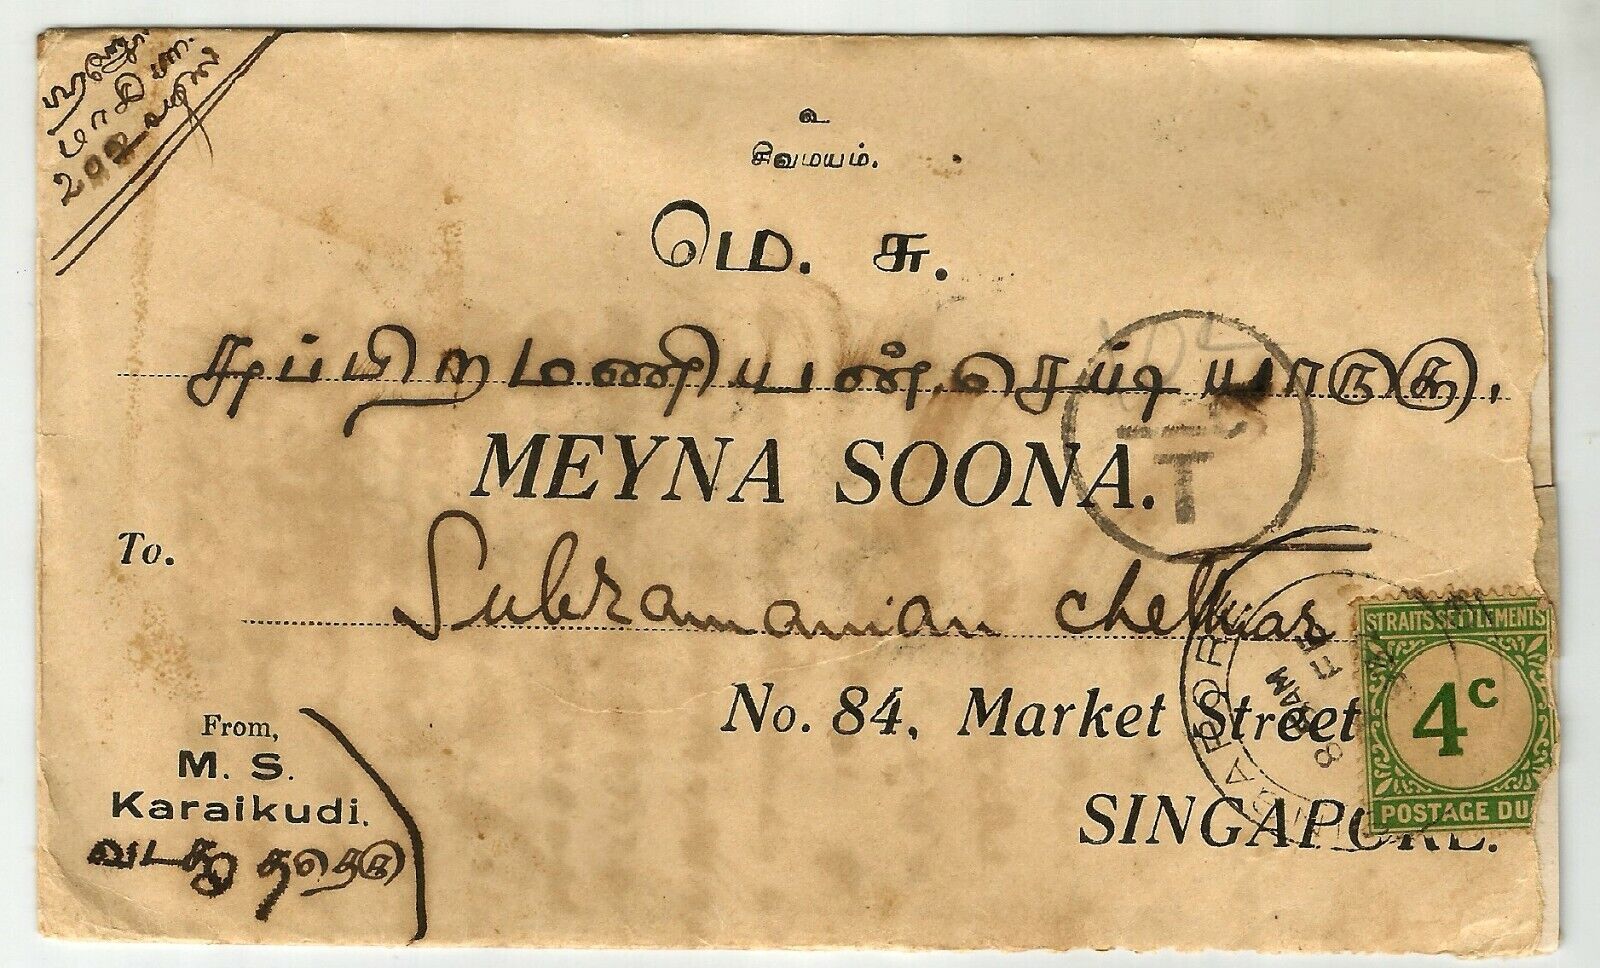 உ
சிவமயம்.
மெ. சு.
சுப்பிறமணியன் செட்டியாருகு,
MEYNA SOONA.
To.
Subramanian Chettiar
No. 84, Market Street
SINGAPORE.
From,
M. S.
Karaikudi.
வடகு
T
SINGAPORE
8 AM
STRAITS SETTLEMENTS
4c
POSTAGE DU